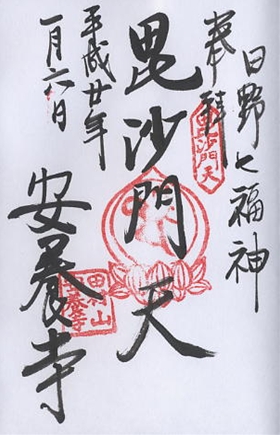 奉拝
日野七福神
毘沙門天
毘沙門天
平成廿年
一月六日
安養寺
田村山
安養寺